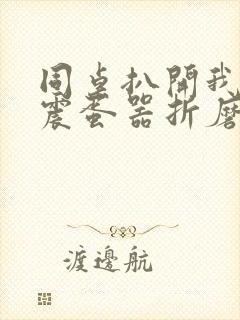 同桌扒開我
震蛋器折磨
渡邊航